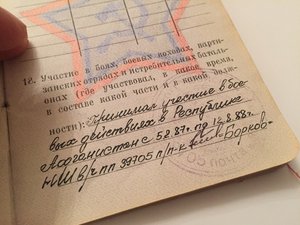 18. Участие в боях, боевых походах, парти-
занских отрядах и истребительных баталь-
онах (где участвовал, в какое время,
в составе какой части и в какой долж-
ности): Принимал участие в бое-
вых действиях в Республике
Афганистан с 5.2.87г. по 14.8.88г.
НШ в/ч пп 39705 п/п-к Борков